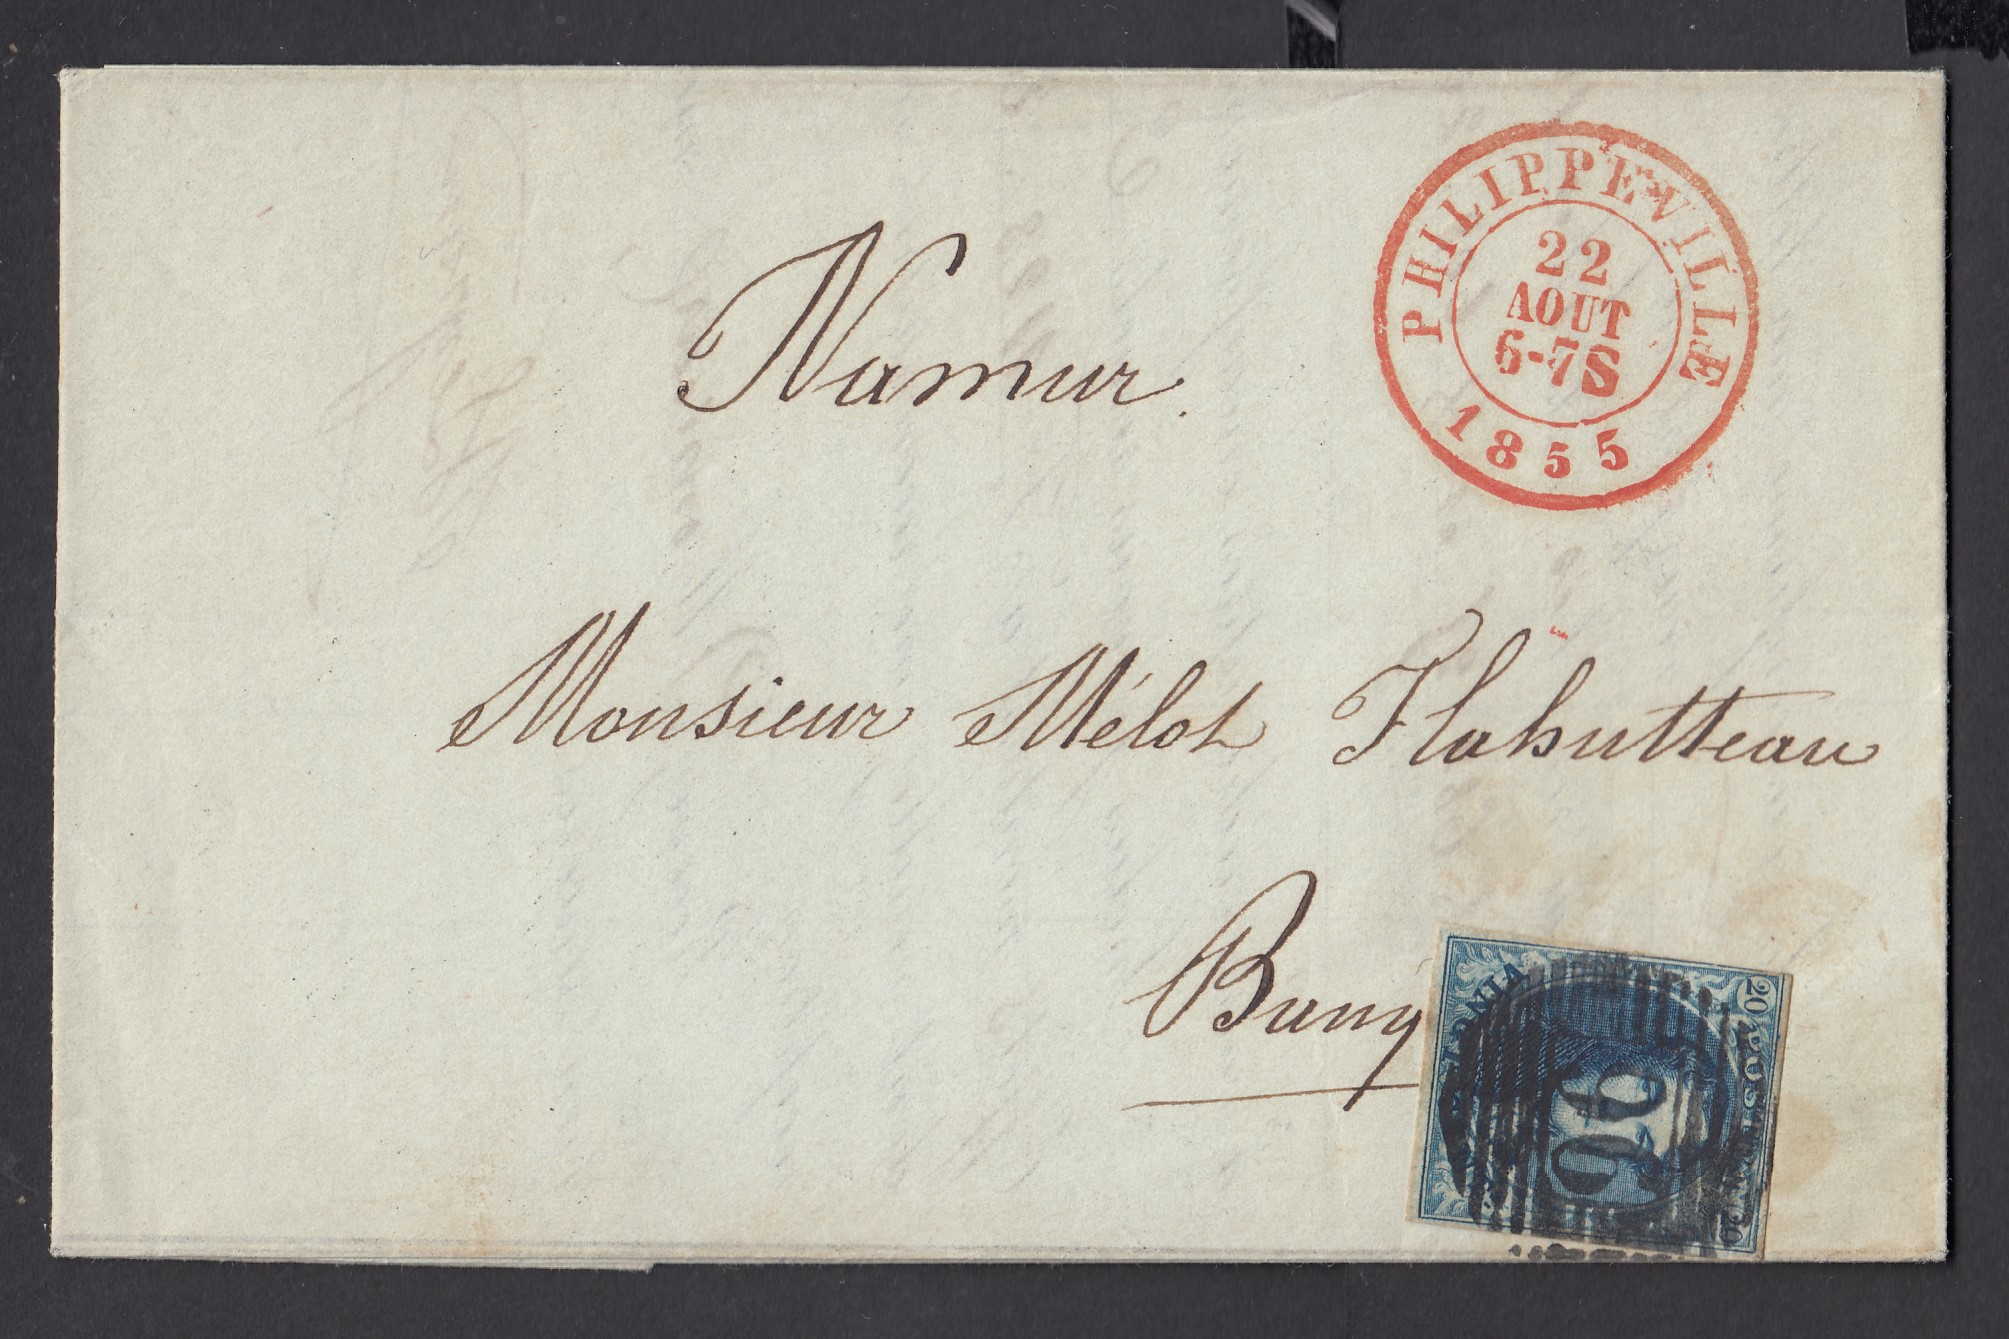 PHILIPPEVILLE
22
AOUT
6-7S
1855
Namur.
Monsieur Mélot Flahutteau
20 POSTES 20
96